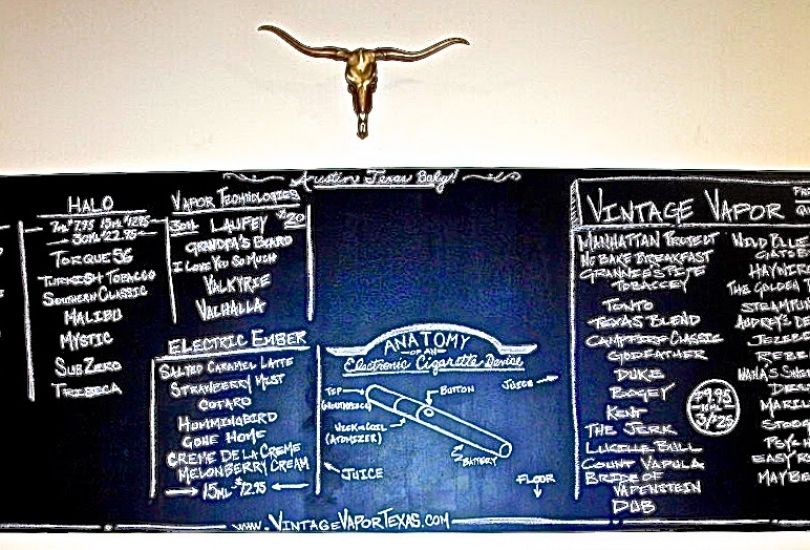 Austin Texas Baby!
HALO
7ml $7.95 15ml $12.95
30ml $22.95
TORQUE 56
TURKISH TOBACCO
SOUTHERN CLASSIC
MALIBU
MYSTIC
SUBZERO
TRIBECA
VAPOR TECHNOLOGIES
30ml LAUFEY $20
GRANDPA'S BEARD
I LOVE YOU SO MUCH
VALKYRIE
VALHALLA
ELECTRIC EMBER
SALTED CARAMEL LATTE
STRAWBERRY MIST
COTARD
HUMMINGBIRD
GONE HOME
CREME DE LA CREME
MELONBERRY CREAM
15ml $12.95
ANATOMY
OF AN
Electronic Cigarette Device
TIP
(MOUTHPIECE)
BUTTON
WICK & COIL
(ATOMIZER)
BATTERY
JUICE
JUICE
FLOOR
VINTAGE VAPOR
MANHATTAN PROJECT
NO BAKE BREAKFAST
GRANNIE'S PIPE
TOBACCEY
TONTO
TEXAS BLEND
CAMPFIRE CLASSIC
GODFATHER
DUKE
BOGEY
KENT
THE JERK
LUCILLE BALL
COUNT VAPULA
BRIDE OF
VAPENSTEIN
DUB
$9.95
15ml
3/$25
WILD BLUE
HAYWIRE
THE GOLDEN
STEAMPUNK
AUDREY'S
REBE
EASY R
MAYBE
www.VINTAGEVAPORTEXAS.COM